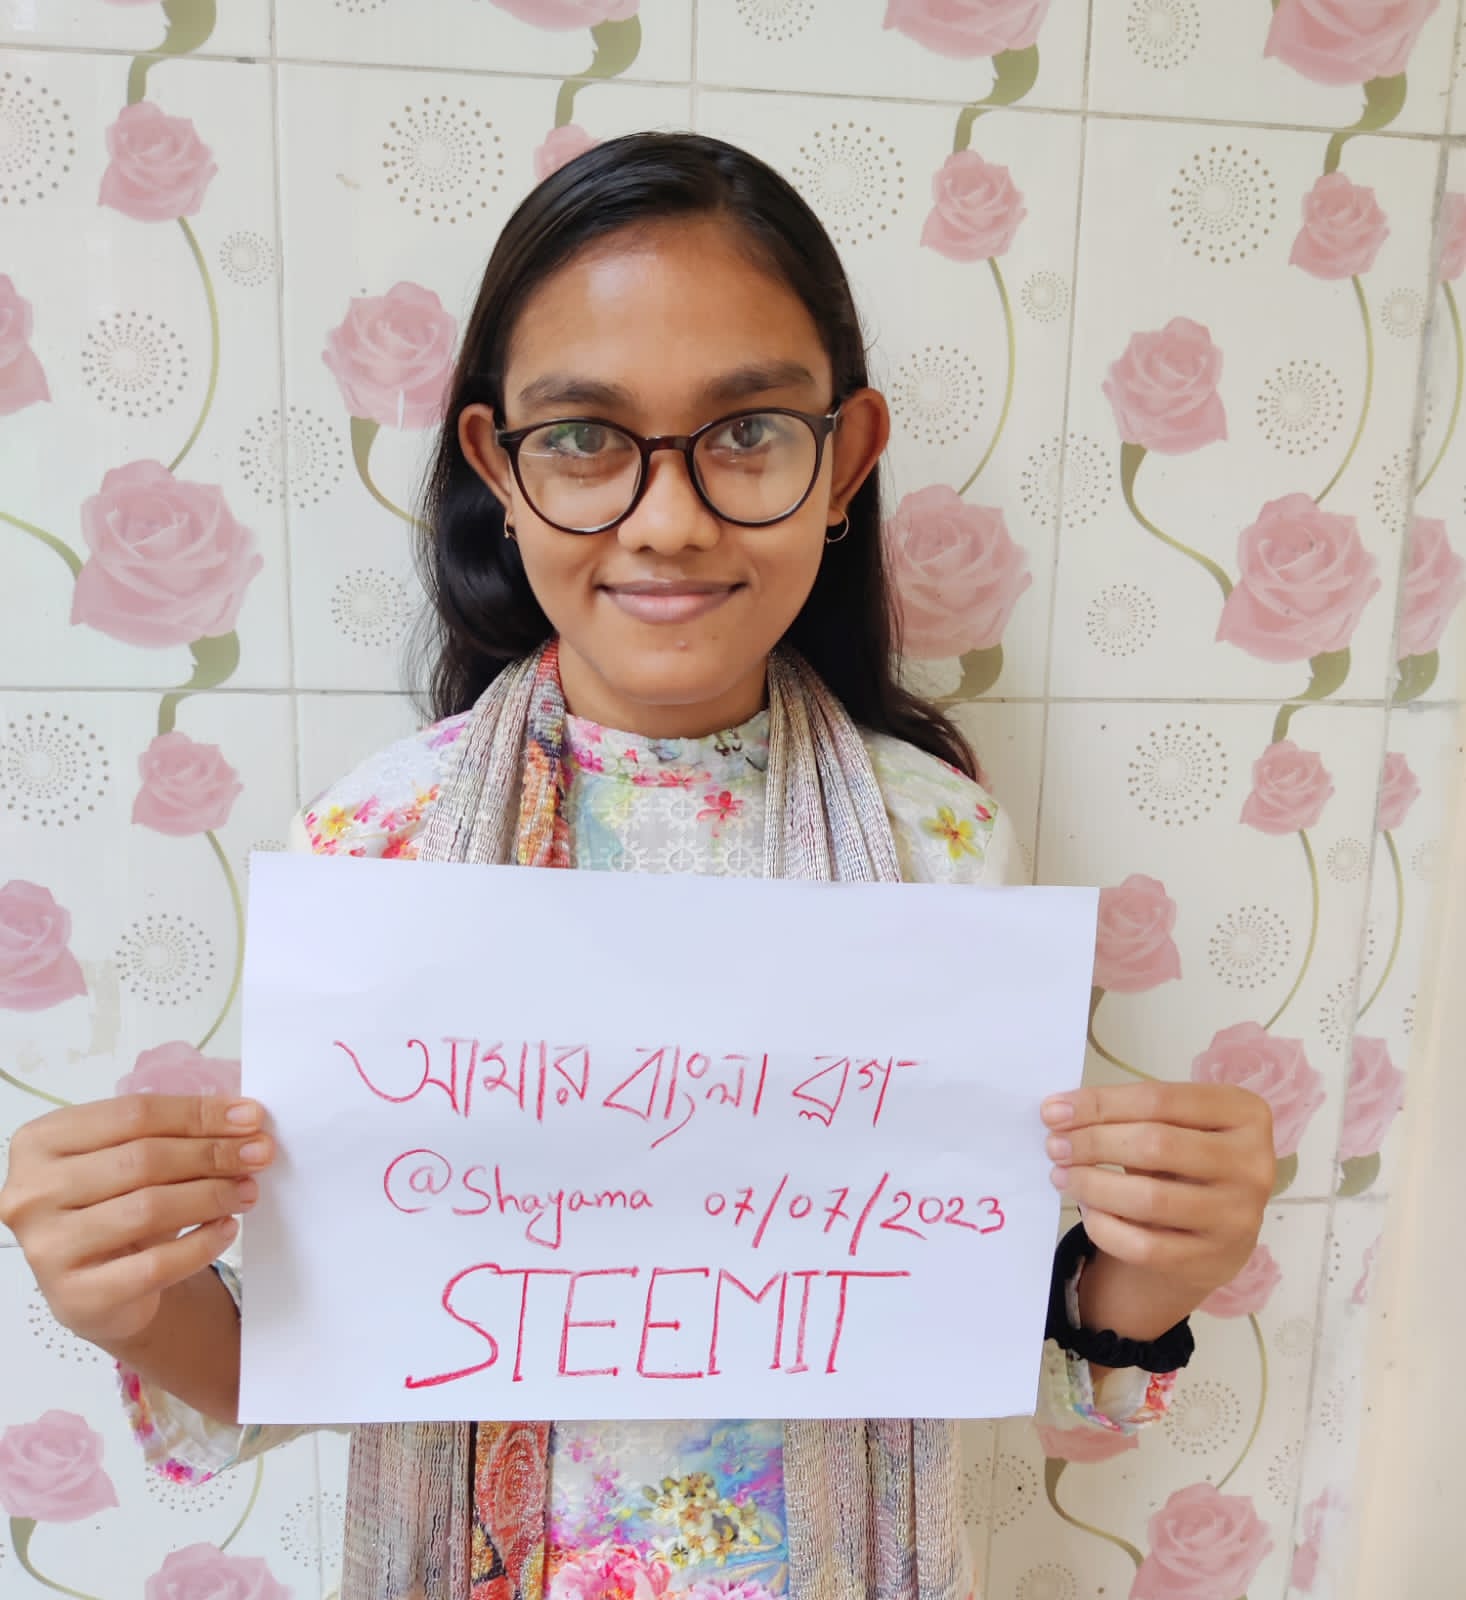 আমার বাংলা ব্লগ
@Shayama 07/07/2023
STEEMIT